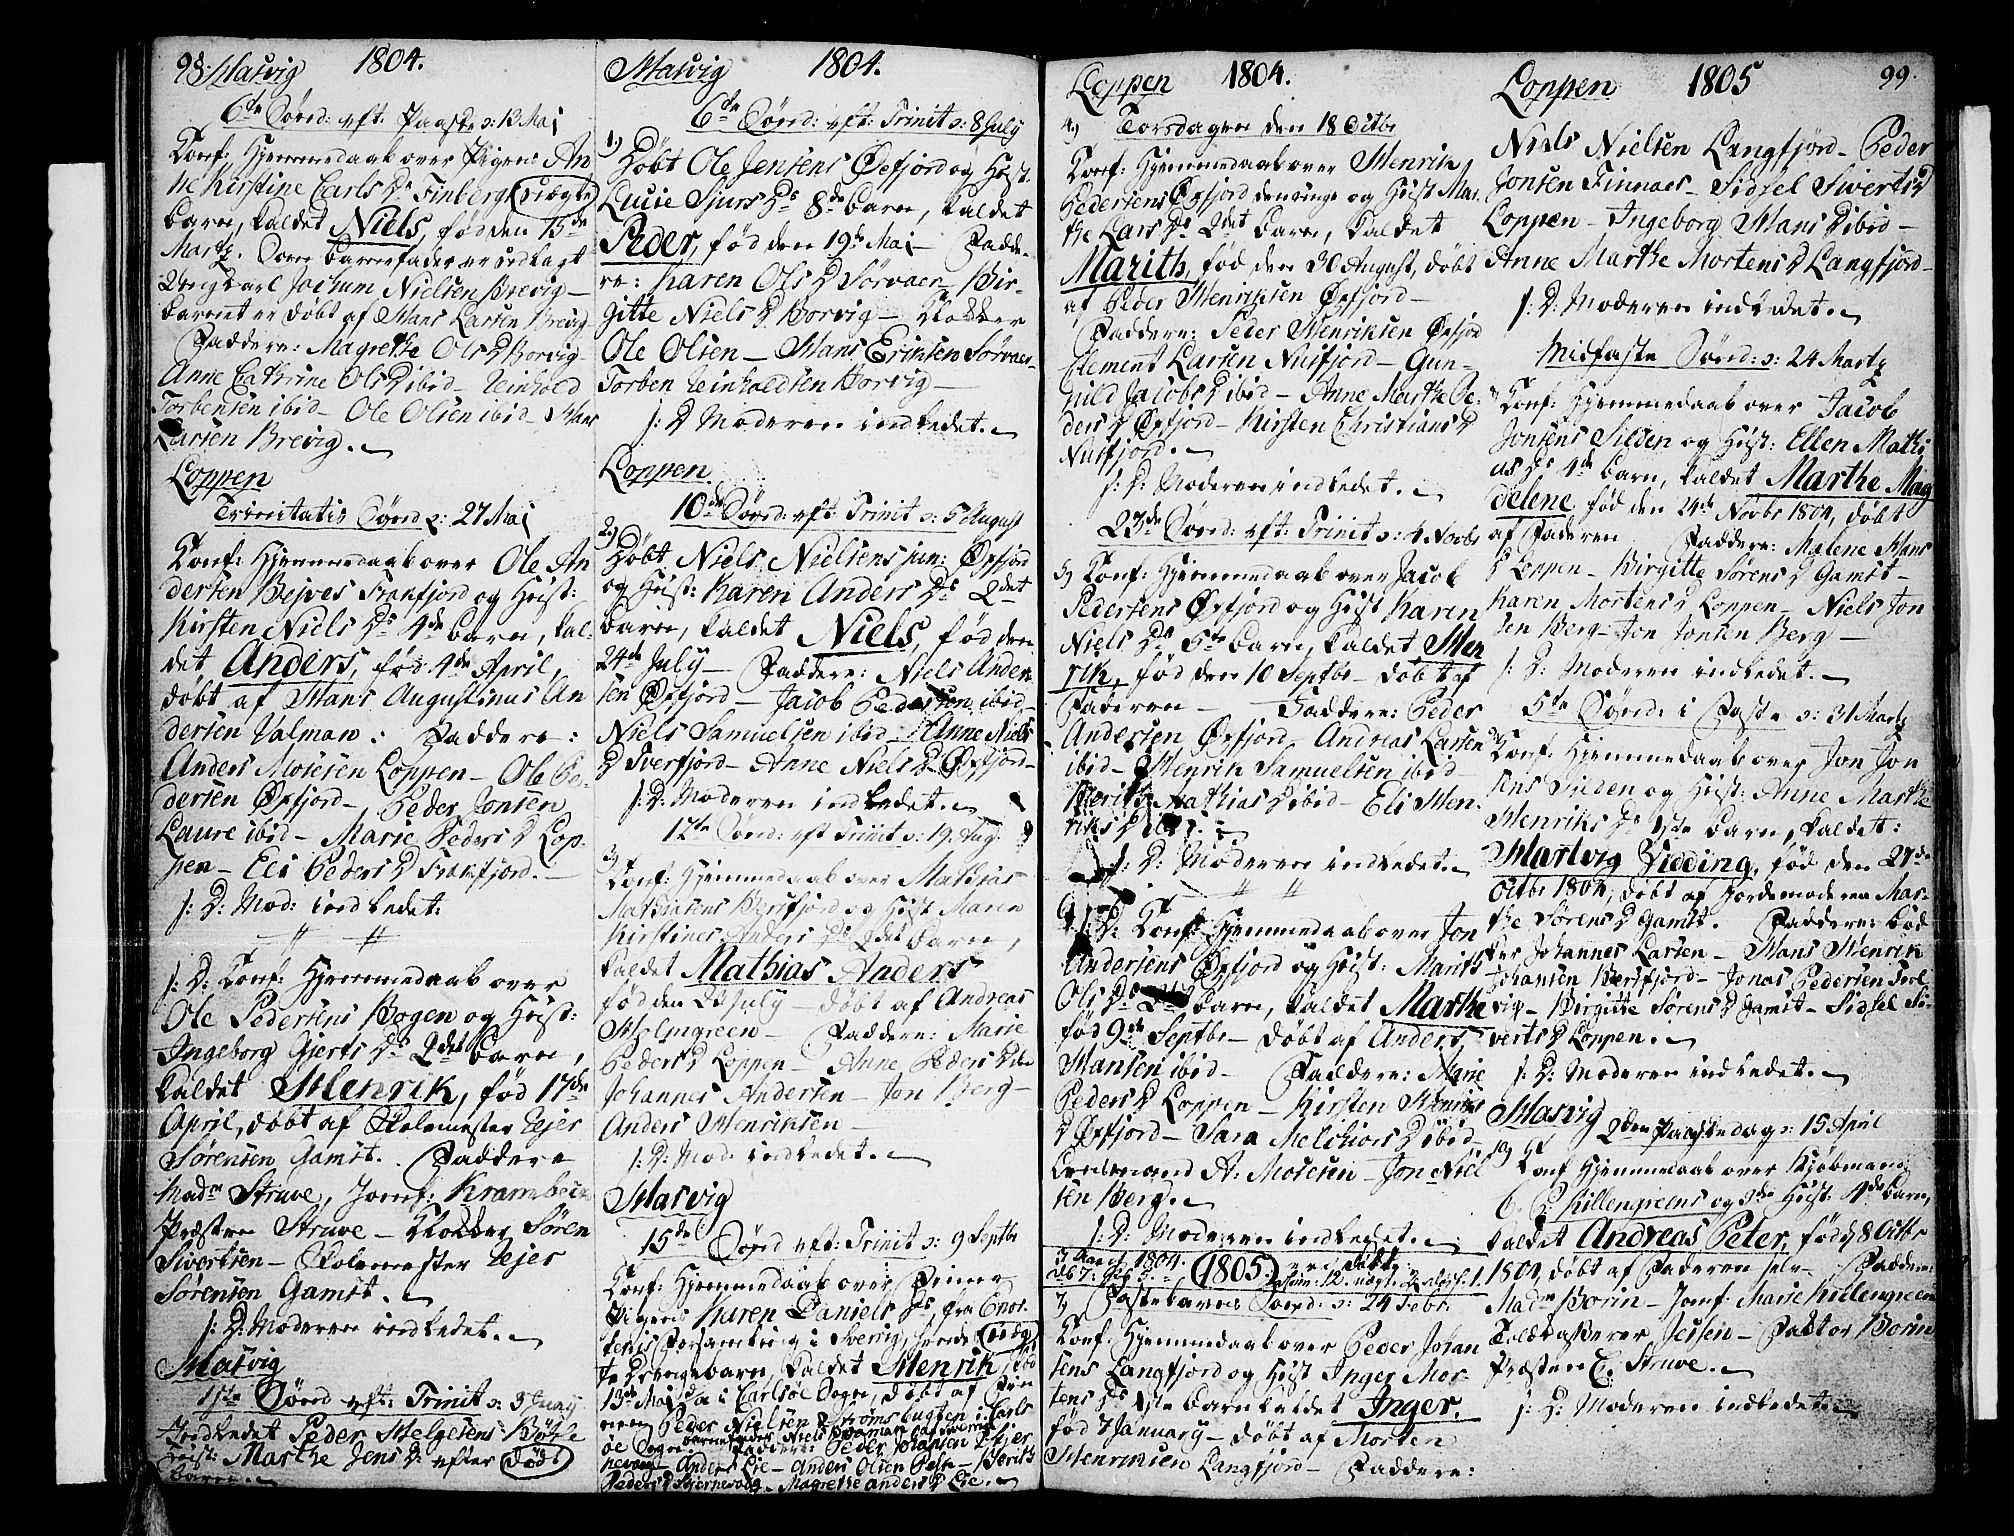 98. Hasvig 1804.
6te Sønd: eft: Paaske ɔ: 13 Maj
Conf: Hjemmedaab over Pigen An
ne Kirstine Carls Ds Finberg uægte
barn, kaldet Niels, fød den 15de
Martz. Som barnefader er udlagt
Ungkarl Jochum Nielsen Brevig –
barnet er døbt af Hans Larsen Brevig
Faddere: Magrethe Ols D Borvig
Anne Cathrine Ols D ibid – Reinhold
Torbensen ibid – Ole Olsen ibid – Hans
Larsen Brevig.
Loppen
Trinitatis Sønd ɔ: 27 Maj
Conf: Hjemmedaab over Ole An
dersen Bejves Frakfjord og Hust:
Kirsten Niels Ds 4de barn, kal-
det Anders, fød 4de April,
døbt af Hans Augustinus An
dersen Valman. Faddere:
Anders Mosesen Loppen – Ole Pe-
dersen Øxfjord – Peder Jonsen
Laure ibid – Marie Peders D Lop-
pen – Eli Peders D Frakfjord. –
s: D: Mod: indledet.
s: D: Conf: Hjemmedaab over
Ole Pedersens Bogen og Hust:
Ingeborg Gjerts Ds 2det barn,
kaldet Henrik, fød 17de
April, døbt af Skolemester Ejer
Sørensen Gamst. Faddere
Madm Struve, Jomf: Krambeck
Præsten Struve – Klokker Søren
Sivertsen – Skolemester Ejer
Sørensen Gamst.
s: D: Moderen indledet.
Hasvig
1ste Sønd eft: Trinit ɔ: 3 Juny
Indledet Peder Helgesens Bøhle
Hust: Marthe Jens D: efter død
barn.
Hasvig 1804.
6te Sønd: eft: Trinit ɔ: 8 July
1) Døbt Ole Jensens Øxfjord og Hust.
Lucie Sjurs Ds 8de barn, kaldet
Peder, fød den 19de Maj – Fadde-
re: Karen Ols D Sørvaer – Bir-
gitte Niels D Borvig – Klokker
Ole Olsen – Hans Eriksen Sørvaer –
Torben Reinholdsen Borvig –
s: D Moderen indledet.
Loppen
10de Sønd: eft: Trinit ɔ: 5 August
2) Døbt Niels Nielsens jun: Øxfjord
og Hust: Karen Anders Ds 2det
barn, kaldet Niels, fød den
24de July – Faddere: Niels Ander
sen Øxfjord – Jacob Pedersen ibid –
Niels Samuelsen ibid – Anne Niels
D Tverfjord – Anne Niels D Øxfjord –
s: D: Moderen indledet.
12te Sønd: eft Trinit ɔ: 19 Aug:
3) Conf: Hjemmedaab over Mathias
Mathiasens Bersfjord og Hust Maren
Kirstines Anders Ds 2det barn,
kaldet Mathias Anders
fød den July – døbt af Andreas
Holmgreen – Faddere: Marie
Peders D Loppen – Anne Peders D ibid
Johannes Andersen – Jon Berg –
Anders Henriksen –
s: D: Mod: indledet.
Hasvig
15de Sønd eft: Trinit ɔ: 9 Septbr
Conf: Hjemmedaab over Finne
Pigens Karen Daniels Ds fra Enon-
tekis Forsamling i Sverrig, hendes uæg
te Drengebarn, kaldet Henrik fød
13de Maj d: a: i Carlsøe Sogn, døbt af Fin
nen Peder Nielsen Strømsbugten i Carls
øe Sogn Faddere: Peder Johansen Stjer
nevaag – Anders Lie – Anders Olsen – Berith
Peders D Stjernevaag – Magrethe Anders D Lie.
Loppen 1804.
4) Torsdagen den 18 Octbr
Conf: Hjemmedaab over Henrik
Pedersens Øxfjord den unge og Hust Mar-
the Lars Ds 2det barn, kaldet
Marith, fød den 30 August, døbt
af Peder Henriksen Øxfjord –
Faddere: Peder Henriksen Øxfjord
Clement Larsen Nusfjord – Gun-
hild Jacobs D ibid – Anne Marthe Pe-
ders D Øxfjord – Kirsten Christians D
Nusfjord.
s: D: Moderen indledet.
23de Sønd: eft: Trinit ɔ: 4 Novbr
5) Conf: Hjemmedaab over Jacob
Pedersens Øxfjord og Hust Karen
Niels Ds 5te barn, kaldet Hen
rik, fød den 10 Septbr – døbt af
Faderen – Faddere: Peder
Andersen Øxfjord – Andreas Larsen
ibid – Henrik Samuelsen ibid –
Berith Mathias D ibid – Eli Hen-
riks D ibid.
s: D: Moderen indledet.
6) s: D: Conf: Hjemmedaab over Jon
Andersens Øxfjord og Hust: Marith
Ols Ds barn, kaldet Marthe
fød 9de Septbr – døbt af Anders
Hansen ibid – Faddere: Marie
Peders D Loppen – Kirsten Henriks
D Øxfjord – Sara Melchiors D ibid –
Ferdinand A: Mosesen – Jon Niel
sen Berg.
s: D: Moderen indledet.
1805
7) Fastelavns Sønd: ɔ: 24 Febr.
Conf: Hjemmedaab over Peder Johan
sens Langfjord og Hust Inger Mor-
tens Ds 1ste barn kaldet Inger,
fød 7 January – døbt af Morten
Henriksen Langfjord – Faddere:
Loppen 1805 99.
Niels Nielsen Langfjord – Peder
Jonsen Finnaes – Sidsel Siverts D
Loppen – Ingeborg Hans D ibid –
Anne Marthe Mortens D Langfjord –
s: D: Moderen indledet.
Midfaste Sønd: ɔ: 24 Martz
Conf: Hjemmedaab over Jacob
Jonsens Silden og Hust: Ellen Mathi
as Ds 4de barn, kaldet Marthe Mag
delene fød den 24de Novbr 1804, døbt
af Faderen Faddere: Malene Hans
D Loppen – Birgitte Sørens D Gamst –
Karen Mortens D Loppen – Niels Jon
sen Berg – Jon Jonsen Berg –
s: D: Moderen indledet.
5te Sønd: i Faste ɔ: 31 Martz
Conf: Hjemmedaab over Jon Jon
sens Silden og Hust: Anne Marthe
Henriks Ds 1ste barn, kaldet:
Hartvig Fieding, fød den 27de
Octbr 1804, døbt af Jordemoderen Mar-
the Sørens D Gamst. Faddere: Bød
ker Johannes Larsen – Hans Henrik
Johansen Bersfjord – Jonas Pedersen
vig – Birgitte Sørens D Gamst – Sidsel Si-
verts D Loppen.
s: D: Moderen indledet.
Hasvig 2den Paaskedag ɔ: 15 April
10) Conf Hjemmedaab over Kjøbmand
C. P. Killengreens og Hust: 4de barn,
kaldet Andreas Peter, fød 8 Octbr
1804, døbt af Faderen selv – Faddere:
Madm Borin – Jomf: Marie Killengreen
Toldkasserer Jessen – Faktor Borin
Præsten C. Struve.
s: D: Moderen indledet.